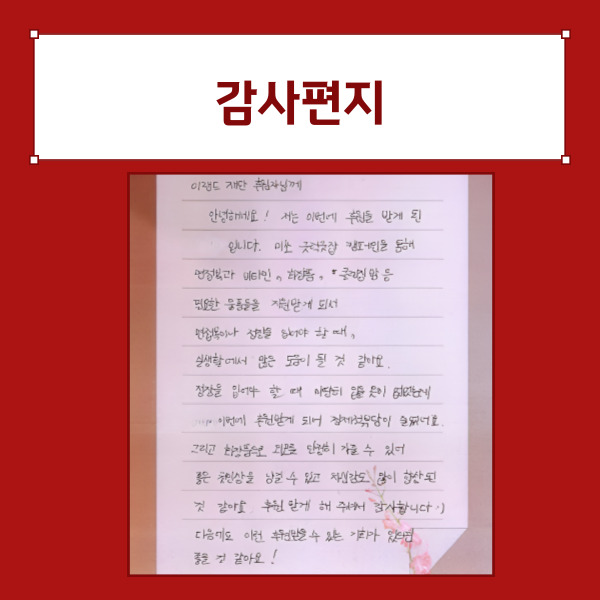 감사편지
이랜드 재단 후원자님께
안녕하세요! 저는 이번에 후원을 받게 된
입니다. 미소 굿럭굿잡 캠페인을 통해
면접복과 비타민, 화장품, 클리닝 등
필요한 물품들을 지원받게 되어
면접복이나 정장을 입어야 할 때,
실생활에서 많은 도움이 될 것 같아요.
정장을 입어야 할 때 마땅히 입을 옷이 없었는데
이번에 후원받게 되어 경제적부담이 줄
그리고 화장품으로 외모를 단정히 가꿀 수 있어
좋은 첫인상을 남길 수 있고 자신감도 많이 향상된
것 같아요 후원 받게 해 주셔서 감사합니다 :)
다음에도 이런 후원받을 수 있는 기회가 있으면
좋을 것 같아요!